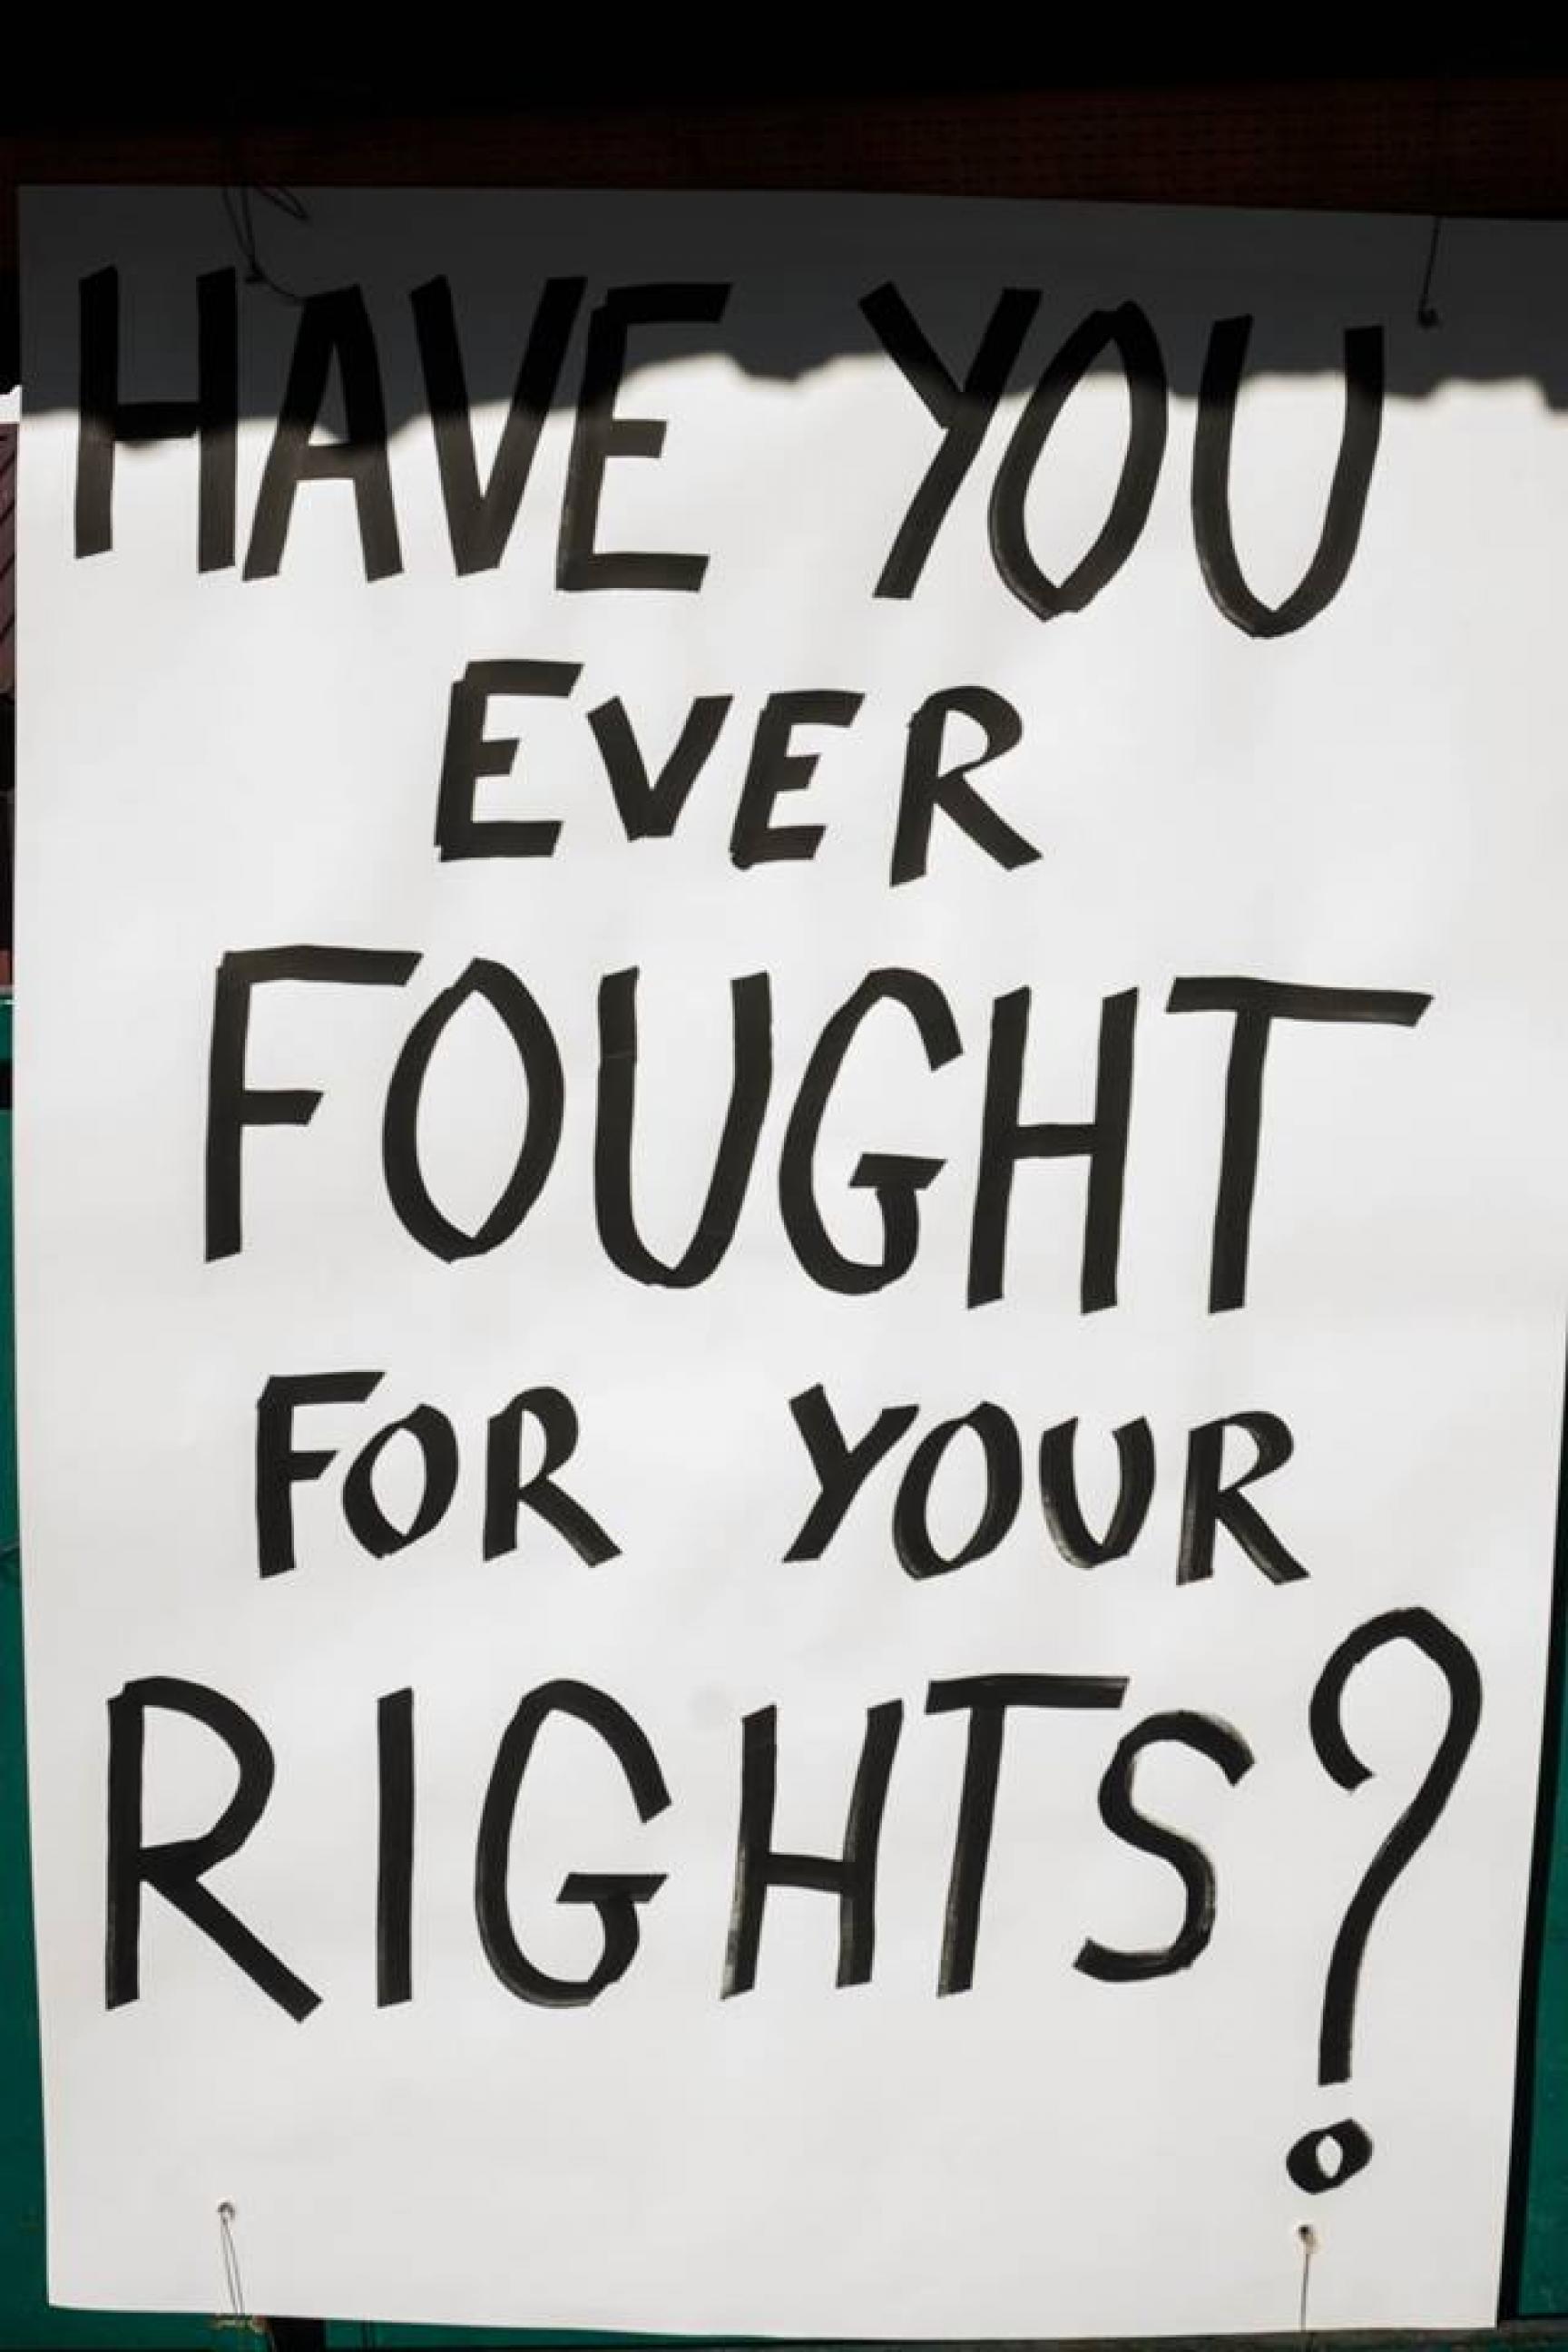 HAVE YOU
EVER
FOUGHT
FOR YOUR
RIGHTS?